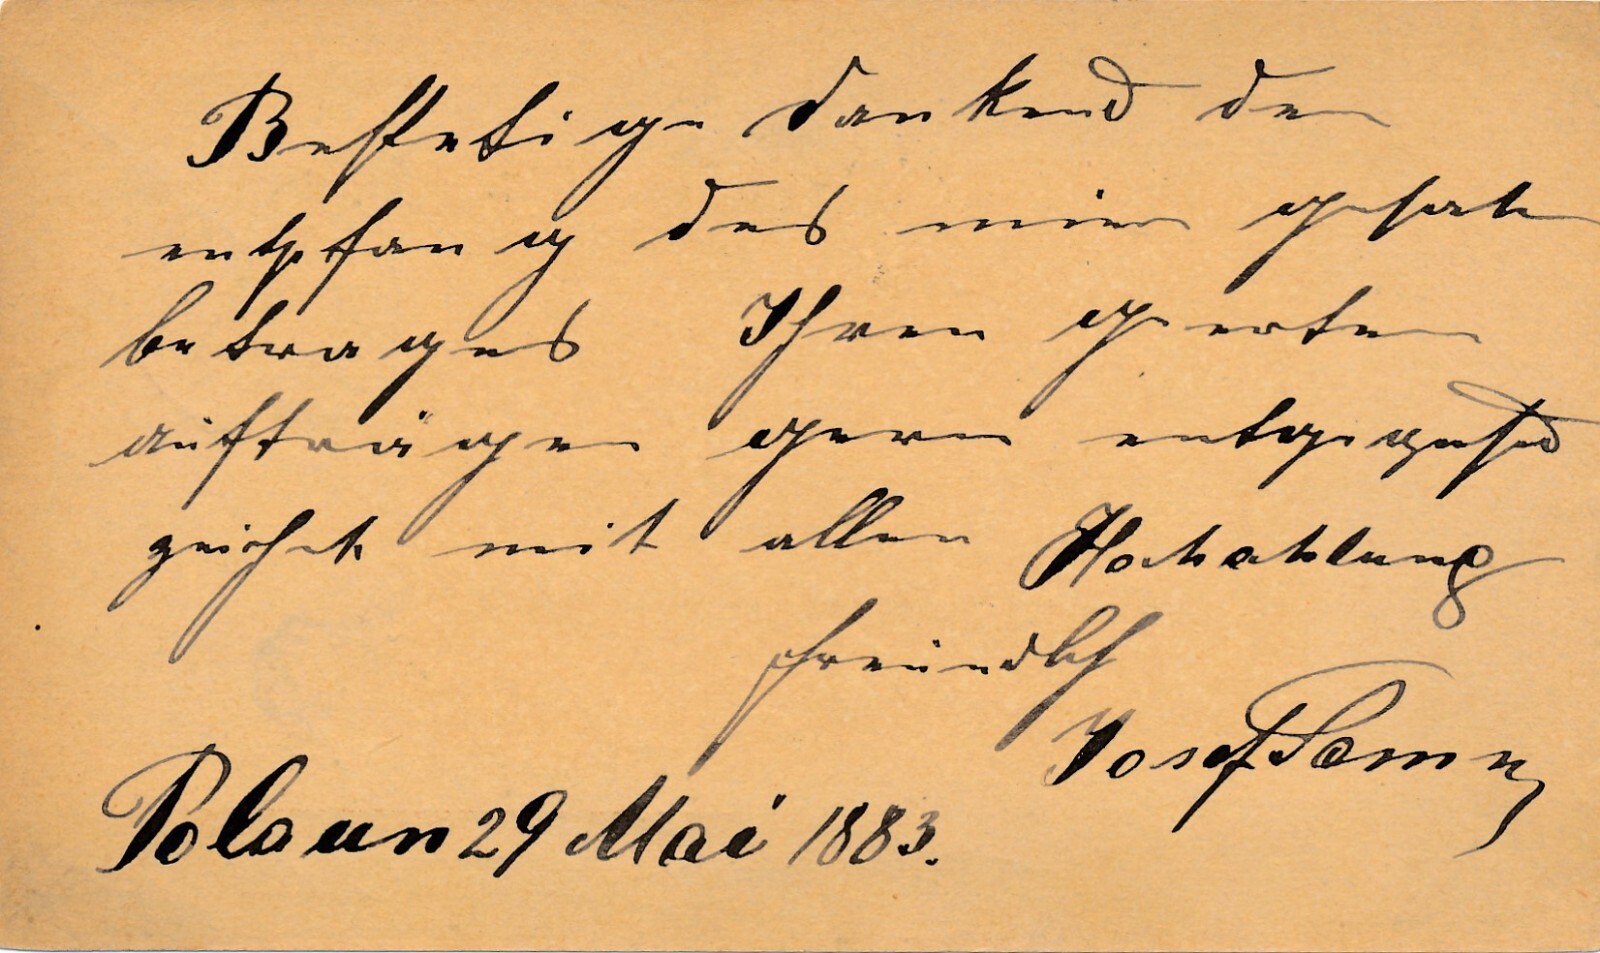 Bestetige dankend den
entpfang des mir gesante
betrages Ihren gerten
aufträgen gern entgegsehd
zeichnet mit allen Hochachtung
freundlich
Josef
Polaun 29 Mai 1883.